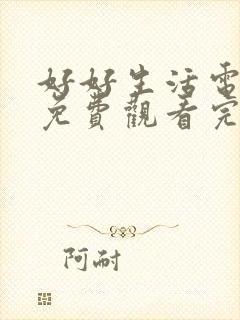 好好生活電
免費觀看完
阿耐